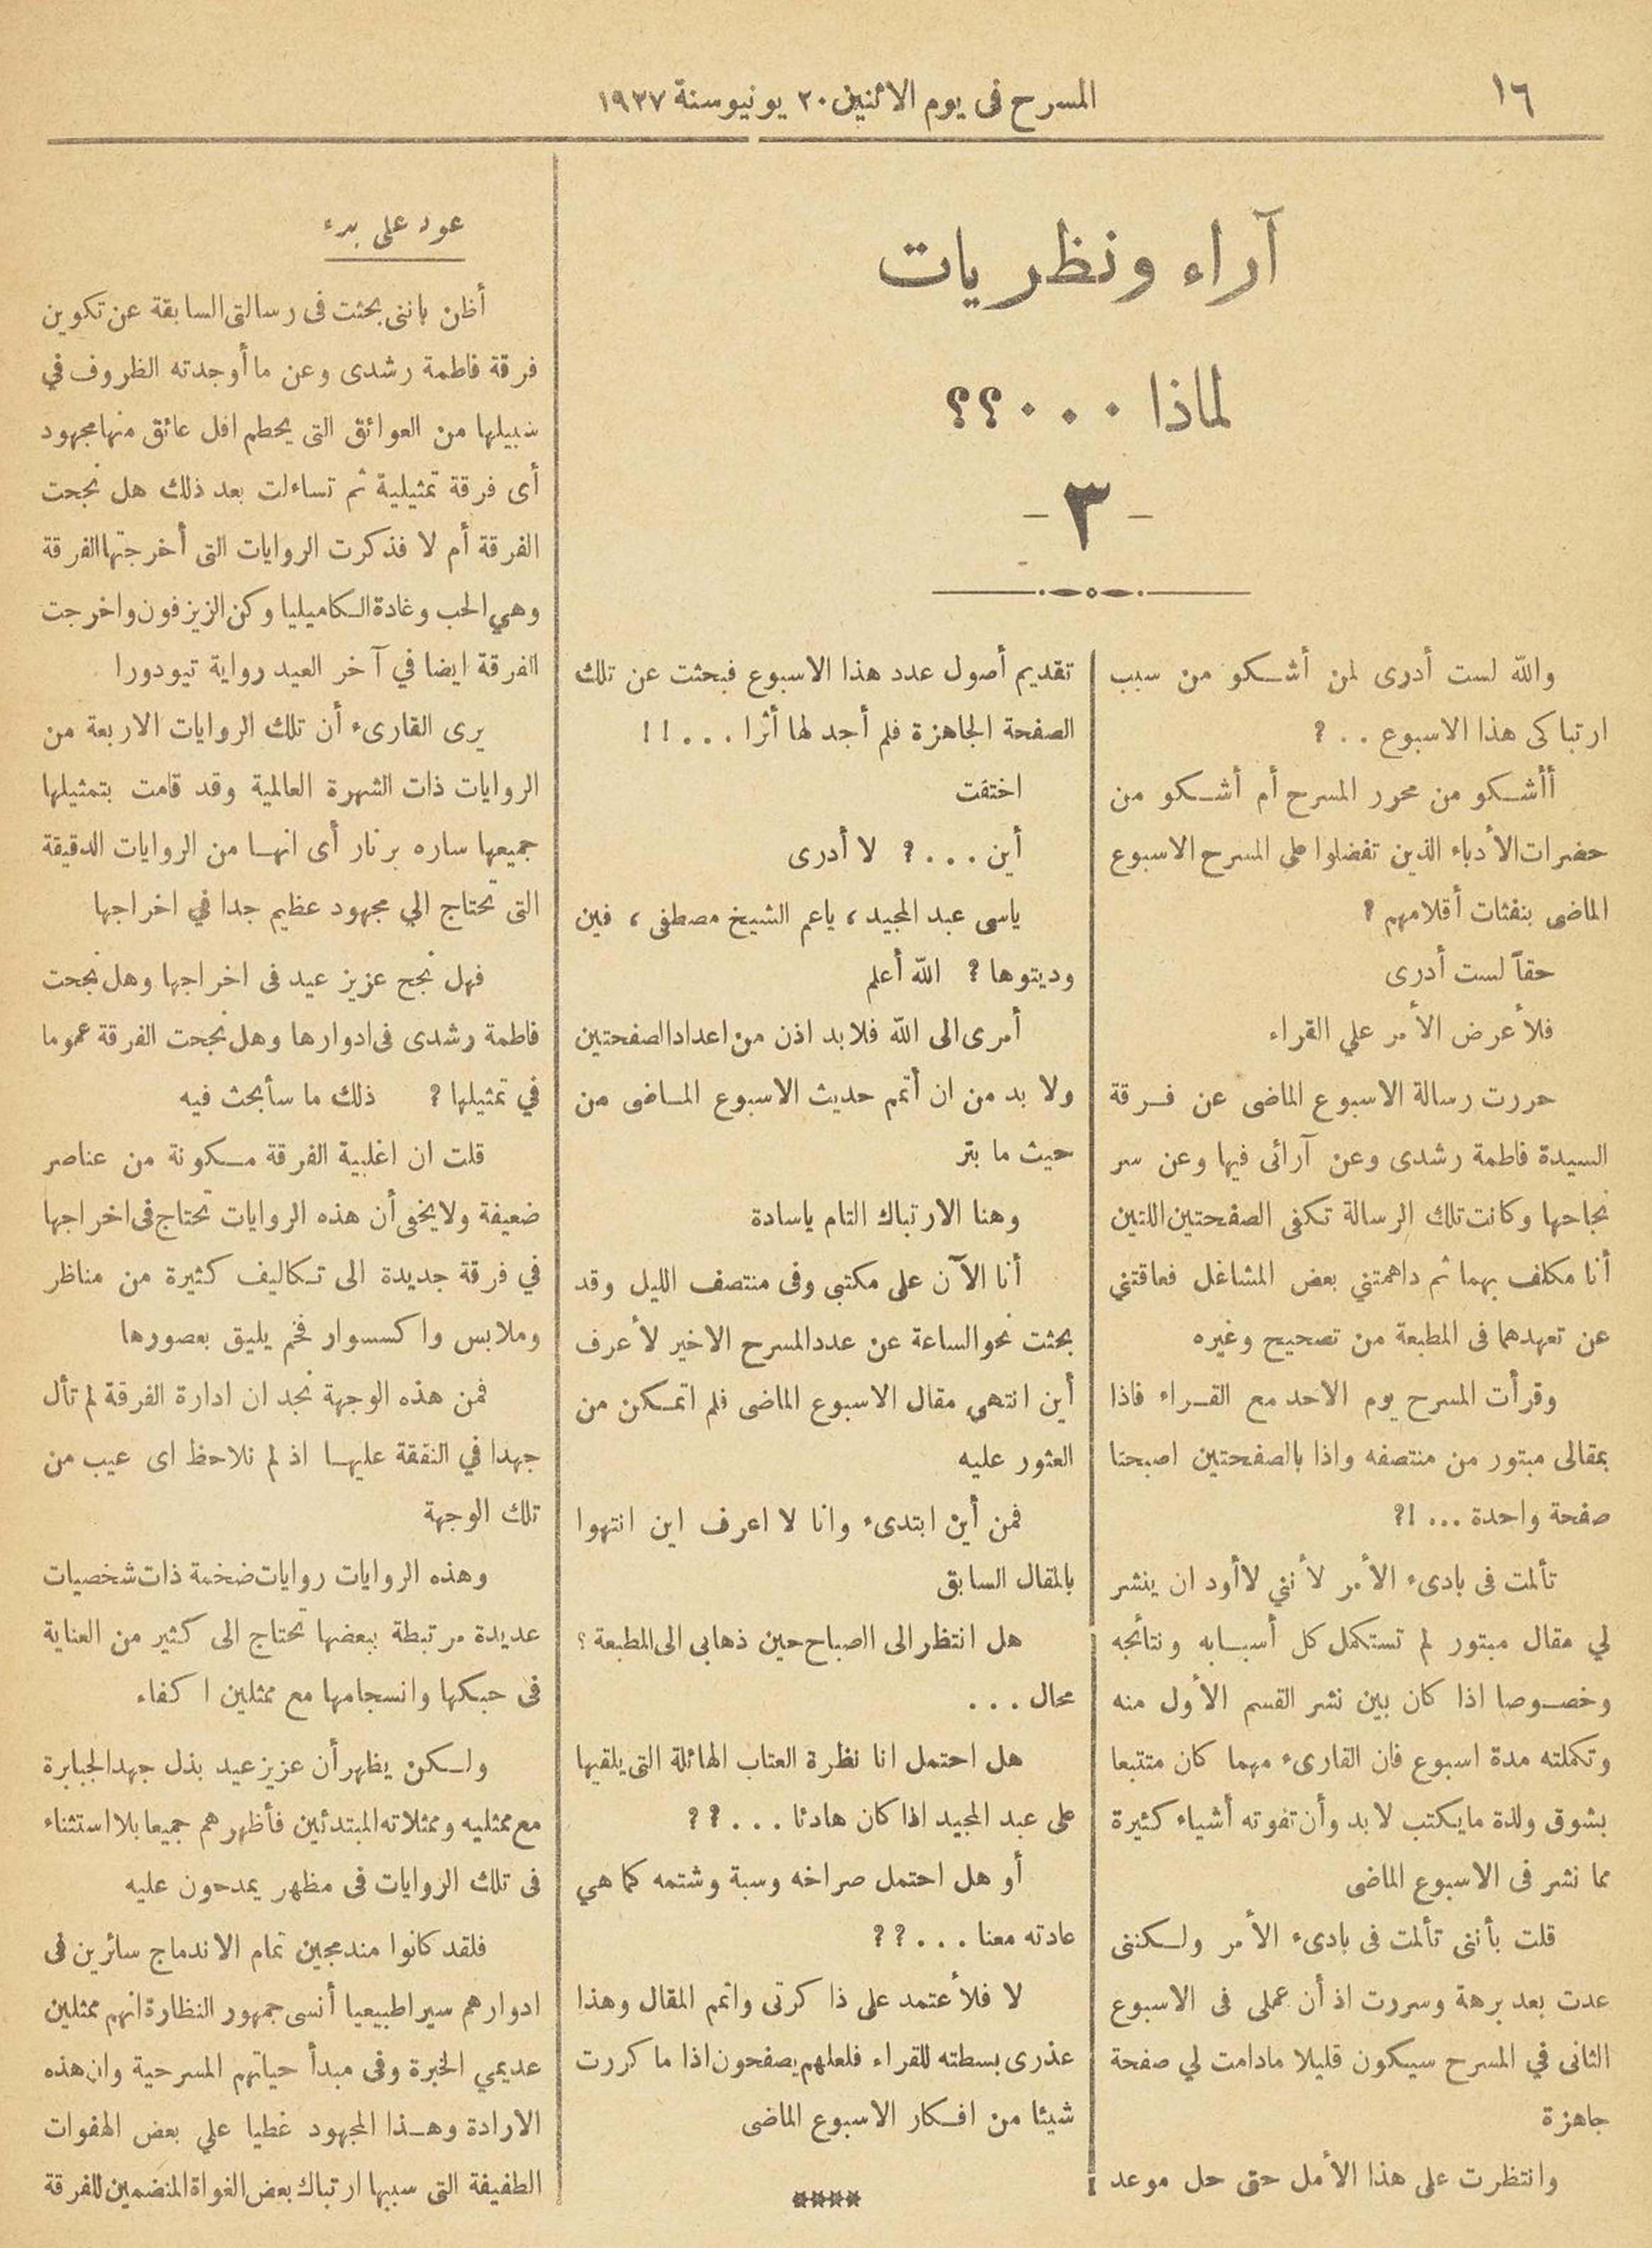 ١٦
المسرح فى يوم الاثنين ٢٠ يونيو سنة ١٩٢٧
آراء ونظريات
لماذا ٠٠٠ ؟؟
- ٣ -
والله لست أدرى لمن أشكو من سبب
ارتباكى هذا الاسبوع . . ?
أأشكو من محرر المسرح أم أشكو من
حضرات الأدباء الذين تفضلوا على المسرح الاسبوع
الماضى بنفثات أقلامهم ?
حقاً لست أدرى
فلأعرض الأمر علي القراء
حررت رسالة الاسبوع الماضى عن فرقة
السيدة فاطمة رشدى وعن آرائى فيها وعن سر
نجاحها وكانت تلك الرسالة تكفى الصفحتين اللتين
أنا مكلف بهما ثم داهمتني بعض المشاغل فعاقتني
عن تعهدهما فى المطبعة من تصحيح وغيره
وقرأت المسرح يوم الاحد مع القراء فاذا
بمقالى مبتور من منتصفه واذا بالصفحتين اصبحتا
صفحة واحدة ... !?
تألمت فى بادىء الأمر لأنني لا أود ان ينشر
لي مقال مبتور لم تستكمل كل أسبابه ونتائجه
وخصوصا اذا كان بين نشر القسم الأول منه
وتكملته مدة اسبوع فان القارىء مهما كان متتبعا
بشوق ولذة ما يكتب لا بد وأن تفوته أشياء كثيرة
مما نشر فى الاسبوع الماضى
قلت بأننى تألمت فى بادىء الأمر ولكننى
عدت بعد برهة وسررت اذ أن عملى فى الاسبوع
الثانى في المسرح سيكون قليلا مادامت لي صفحة
جاهزة
وانتظرت على هذا الأمل حتى حل موعد
تقديم أصول عدد هذا الاسبوع فبحثت عن تلك
الصفحة الجاهزة فلم أجد لها أثرا . . . ! !
اختفت
أين . . . ? لا أدرى
ياسى عبد المجيد ، ياعم الشيخ مصطفى ، فين
وديتوها ? الله أعلم
أمرى الى الله فلابد اذن من اعداد الصفحتين
ولا بد من ان أتمم حديث الاسبوع الماضى من
حيث ما بتر
وهنا الارتباك التام ياسادة
أنا الآن على مكتبى وفى منتصف الليل وقد
بحثت نحو الساعة عن عدد المسرح الاخير لأعرف
أين انتهى مقال الاسبوع الماضى فلم اتمكن من
العثور عليه
فمن أين ابتدىء وانا لا اعرف اين انتهوا
بالمقال السابق
هل انتظر الى الصباح حين ذهابى الى المطبعة ؟
محال . . .
هل احتمل انا نظرة العتاب الهائلة التى يلقيها
على عبد المجيد اذا كان هادئا . . . ??
أو هل احتمل صراخه وسبة وشتمه كما هي
عادته معنا . . . ??
لا فلأعتمد على ذاكرتى واتمم المقال وهذا
عذرى بسطته للقراء فلعلهم يصفحون اذا ما كررت
شيئا من افكار الاسبوع الماضى
****
عود على بدء
أظن بانى بحثت فى رسالتى السابقة عن تكوين
فرقة فاطمة رشدى وعن ما أوجدته الظروف في
سبيلها من العوائق التى يحطم اقل عائق منها مجهود
أى فرقة تمثيلية ثم تساءلت بعد ذلك هل نجحت
الفرقة أم لا فذكرت الروايات التى أخرجتها الفرقة
وهي الحب وغادة الكاميليا وكن الزيزفون واخرجت
الفرقة ايضا في آخر العيد رواية تيودورا
يرى القارىء أن تلك الروايات الاربعة من
الروايات ذات الشهرة العالمية وقد قامت بتمثيلها
جميعها ساره برنار أى انها من الروايات الدقيقة
التى تحتاج الي مجهود عظيم جدا في اخراجها
فهل نجح عزيز عيد فى اخراجها وهل نجحت
فاطمة رشدى فى ادوارها وهل نجحت الفرقة عموما
في تمثيلها ? ذلك ما سأبحث فيه
قلت ان اغلبية الفرقة مكونة من عناصر
ضعيفة ولا يخفى أن هذه الروايات تحتاج فى اخراجها
في فرقة جديدة الى تكاليف كثيرة من مناظر
وملابس واكسسوار فخم يليق بعصورها
فمن هذه الوجهة نجد ان ادارة الفرقة لم تأل
جهدا في النفقة عليها اذ لم نلاحظ اى عيب من
تلك الوجهة
وهذه الروايات روايات ضخمة ذات شخصيات
عديدة مرتبطة ببعضها تحتاج الى كثير من العناية
فى حبكها وانسجامها مع ممثلين اكفاء
ولكن يظهر أن عزيز عيد بذل جهد الجبابرة
مع ممثليه وممثلاته المبتدئين فأظهرهم جميعا بلا استثناء
فى تلك الروايات فى مظهر يمدحون عليه
فلقد كانوا مندمجين تمام الاندماج سائرين فى
ادوارهم سيرا طبيعيا أنسى جمهور النظارة انهم ممثلين
عديمي الخبرة وفى مبدأ حياتهم المسرحية وان هذه
الارادة وهذا المجهود غطيا علي بعض الهفوات
الطفيفة التى سببها ارتباك بعض الغواة المنضمين للفرقة